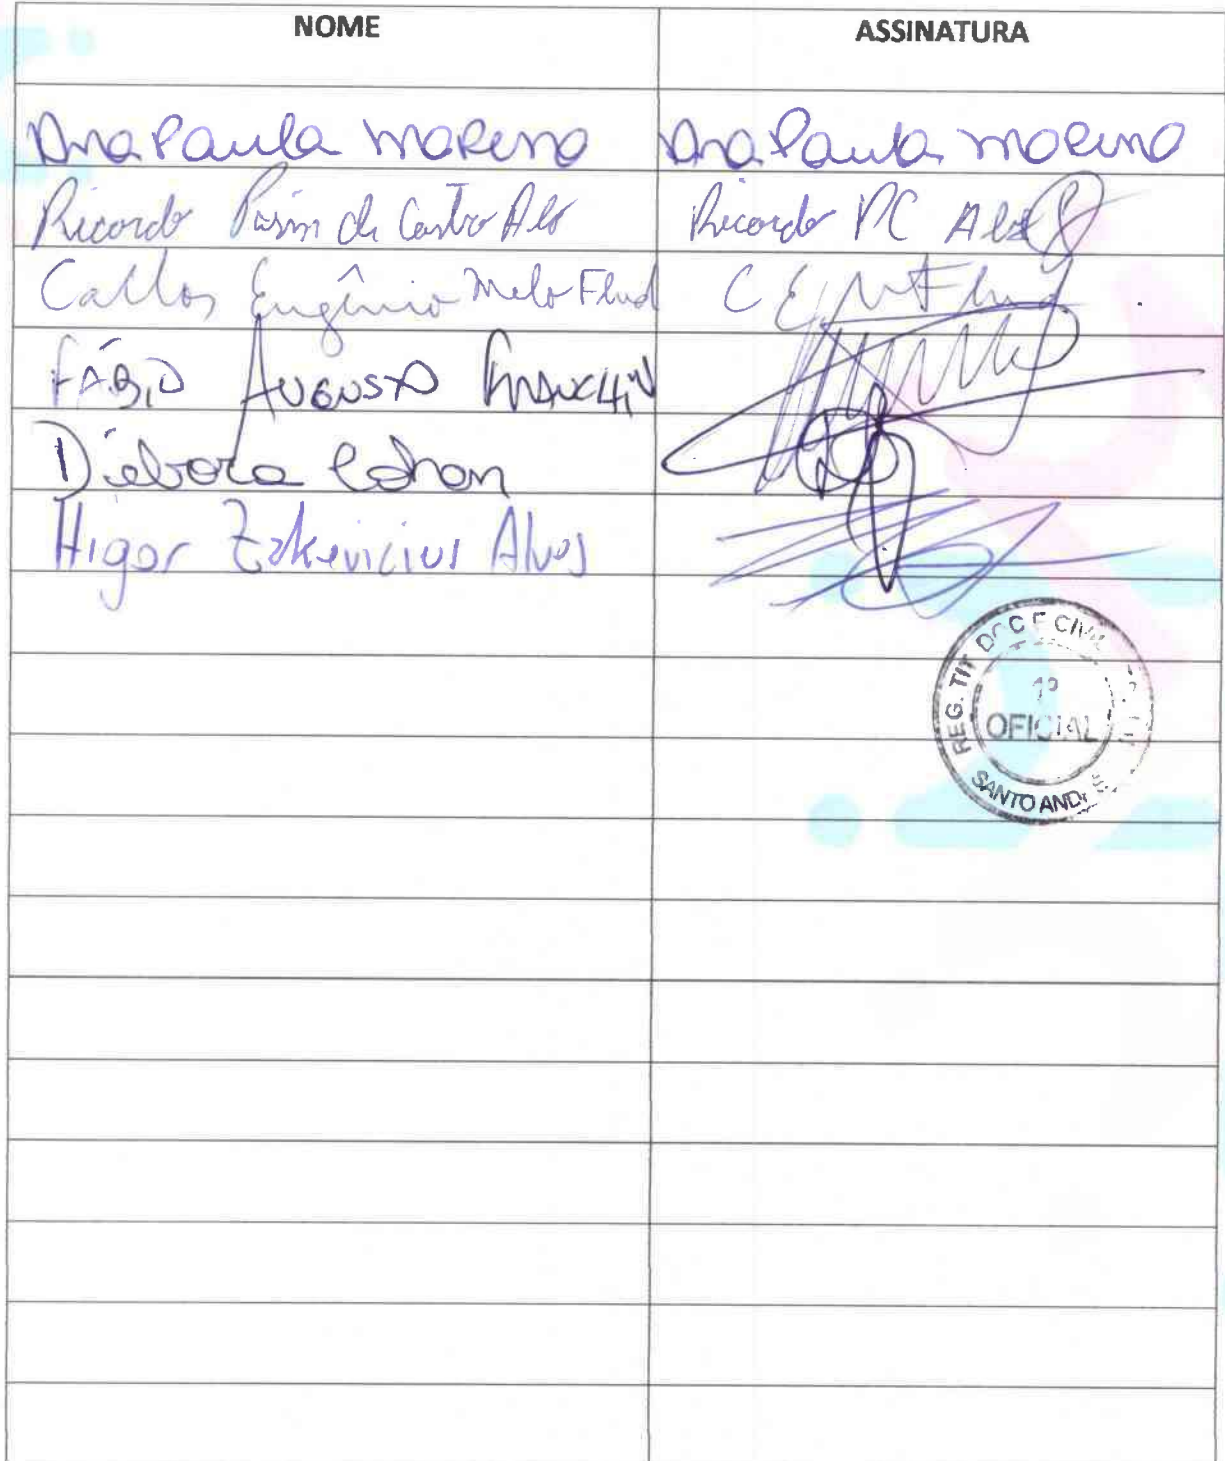 NOME ASSINATURA
Ana Paula Moreno Ana Paula Moreno
Ricardo de Castro Ricardo PC
Carlos Eugênio Melo C E M
FÁBIO AUGUSTO
Débora
Higor Zakevicius Alves
REG. TIT. DOC E CIVIL
1º
OFICIAL
SANTO ANDRÉ